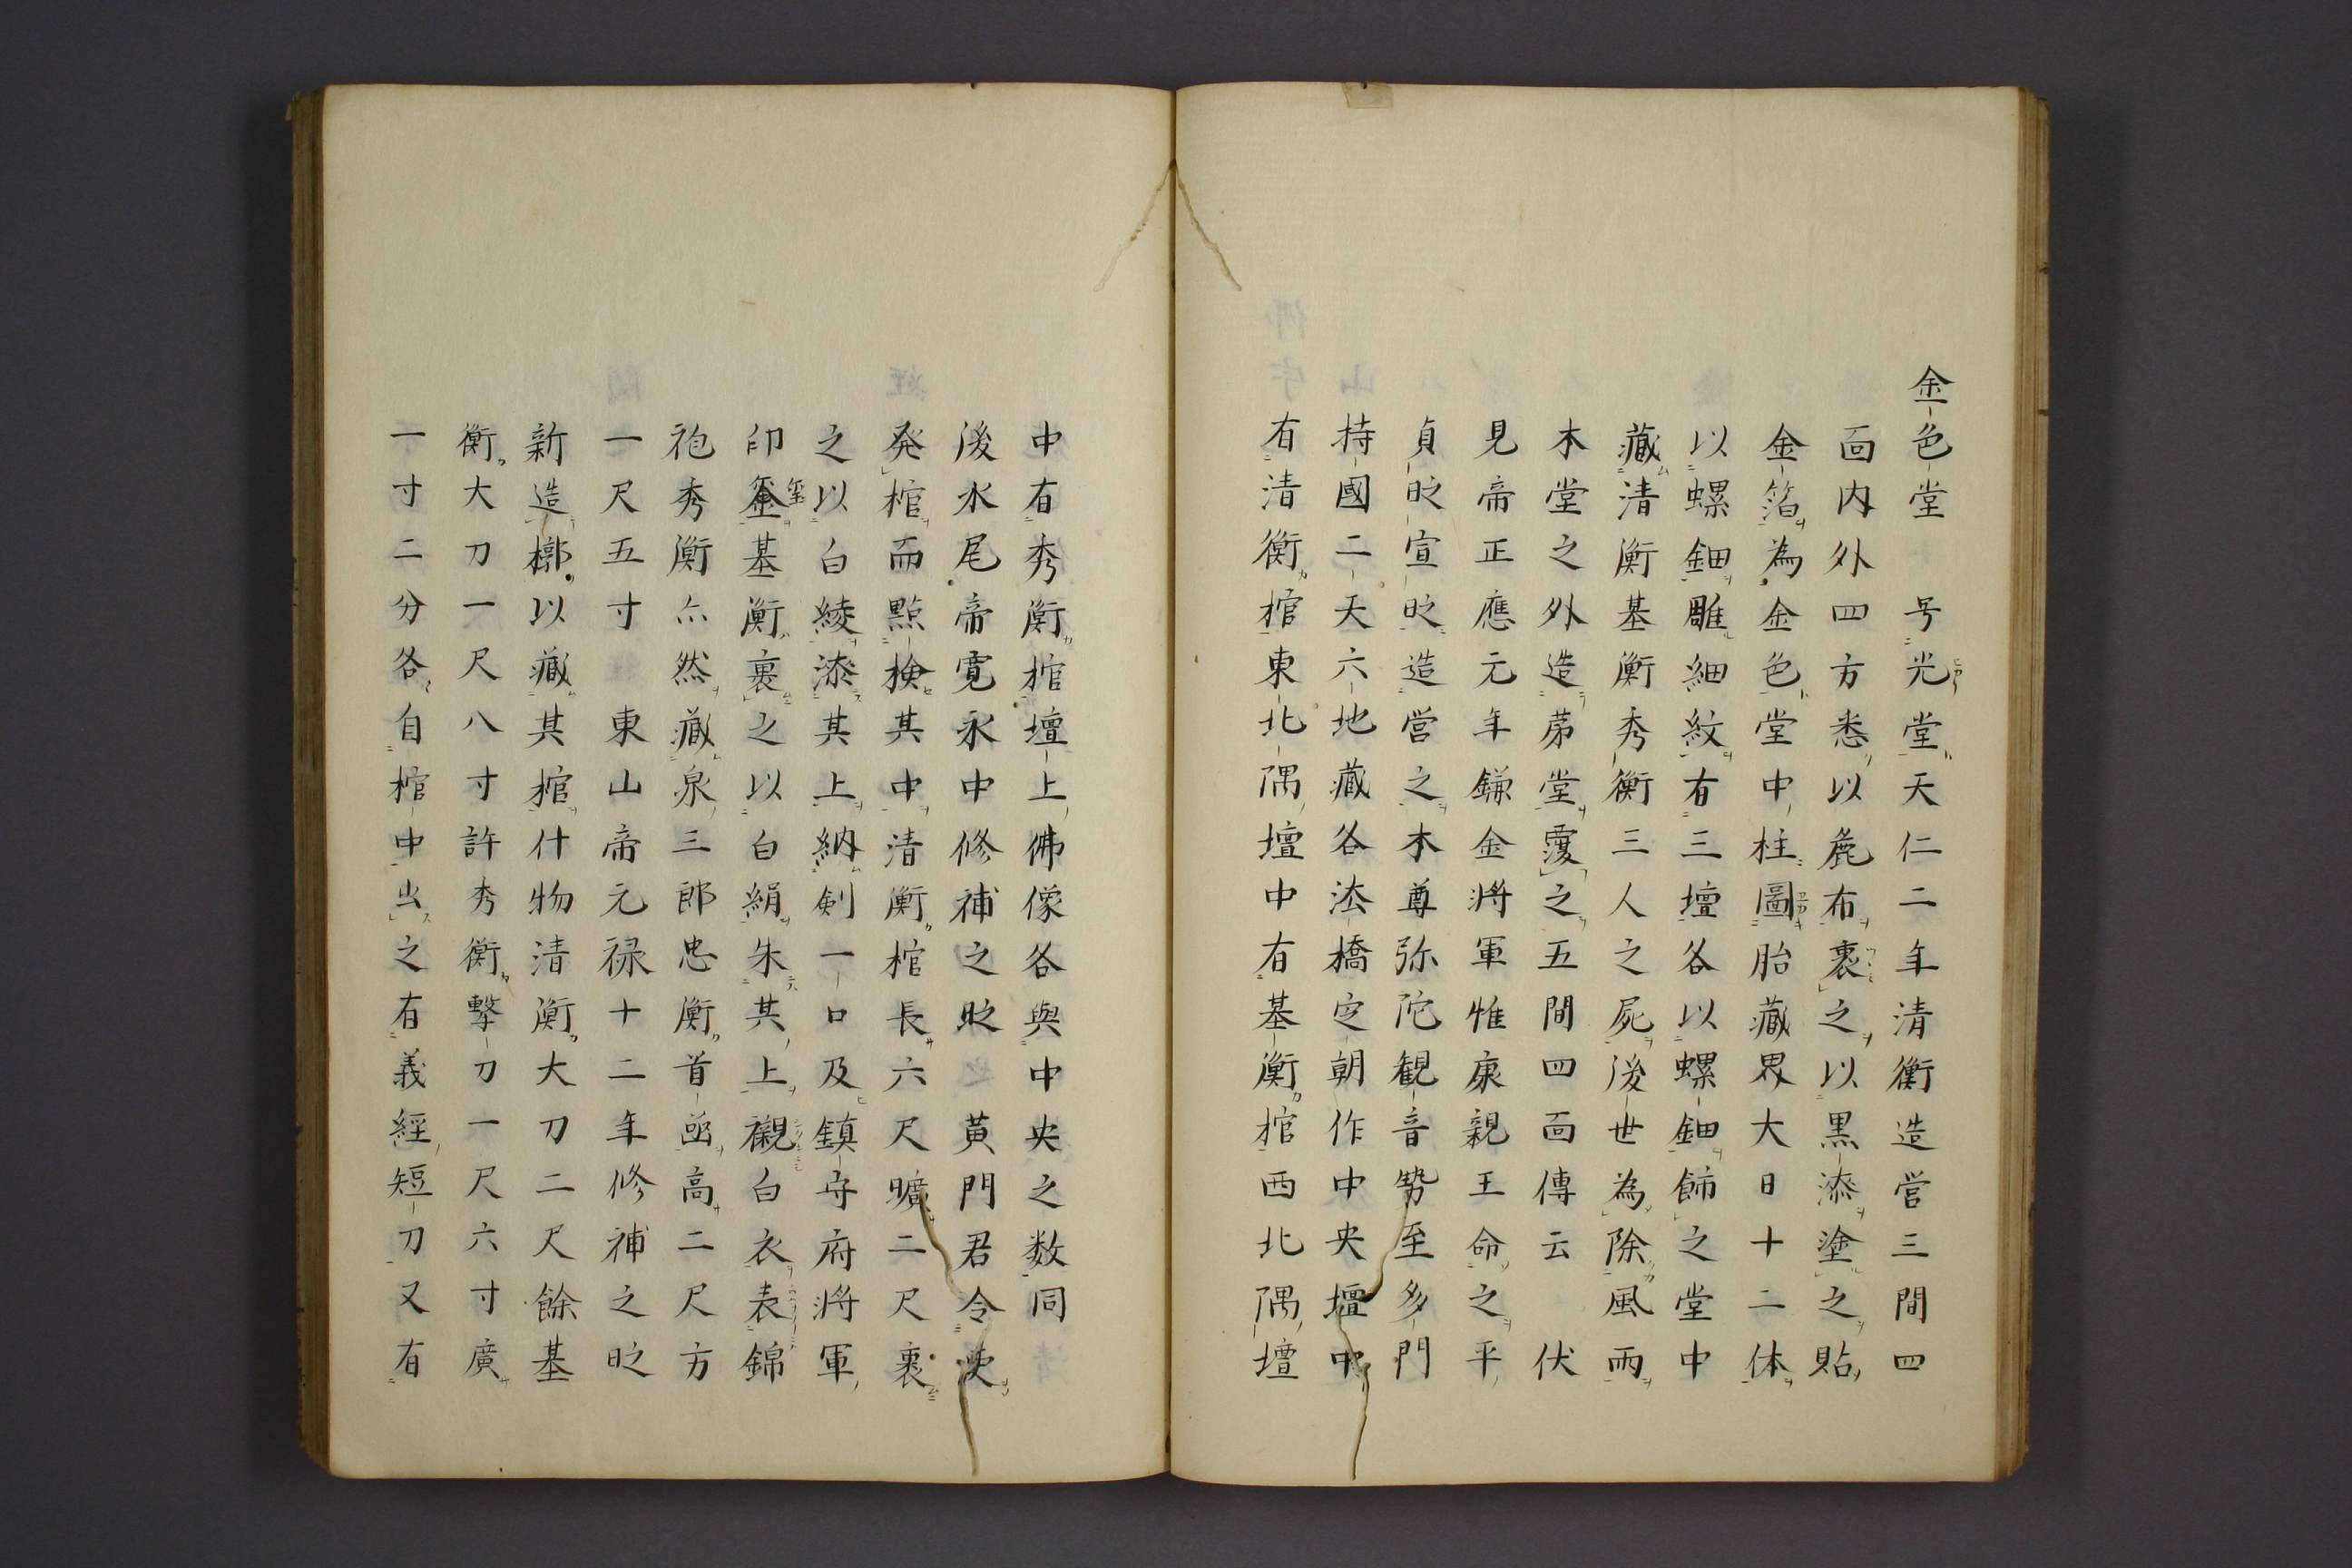 金色堂 号光堂天仁二年清衡造営三間四
面内外四方悉以麁布裹之以黒漆塗之貼
金箔為金色堂中柱圖胎藏界大日十二体
以螺鈿雕細紋有三壇各以螺鈿飾之堂中
藏清衡基衡秀衡三人之屍後世為除風雨
木堂之外造茀堂覆之五間四面傳云 伏
見帝正應元年鎌金將軍惟康親王命之平
貞時宣時造営之本尊弥陀観音勢至多門
持國二天六地藏各湛橋定朝作中央壇中
有清衡棺東北隅壇中有基衡棺西北隅壇
中有秀衡棺壇上佛像各與中央之数同
後水尾帝寛永中修補之時 黄門君令使
発棺而點検其中清衡棺長六尺曠二尺裹
之以白綾漆其上納剣一口及鎮守府將軍
印璽基衡裹之以白絹朱其上襯白衣表錦
袍秀衡亦然藏泉三郎忠衡首凾高二尺方
一尺五寸 東山帝元禄十二年修補之時
新造槨以藏其棺什物清衡大刀二尺餘基
衡大刀一尺八寸許秀衡擊刀一尺六寸廣
一寸二分各自棺中出之有義經短刀又有